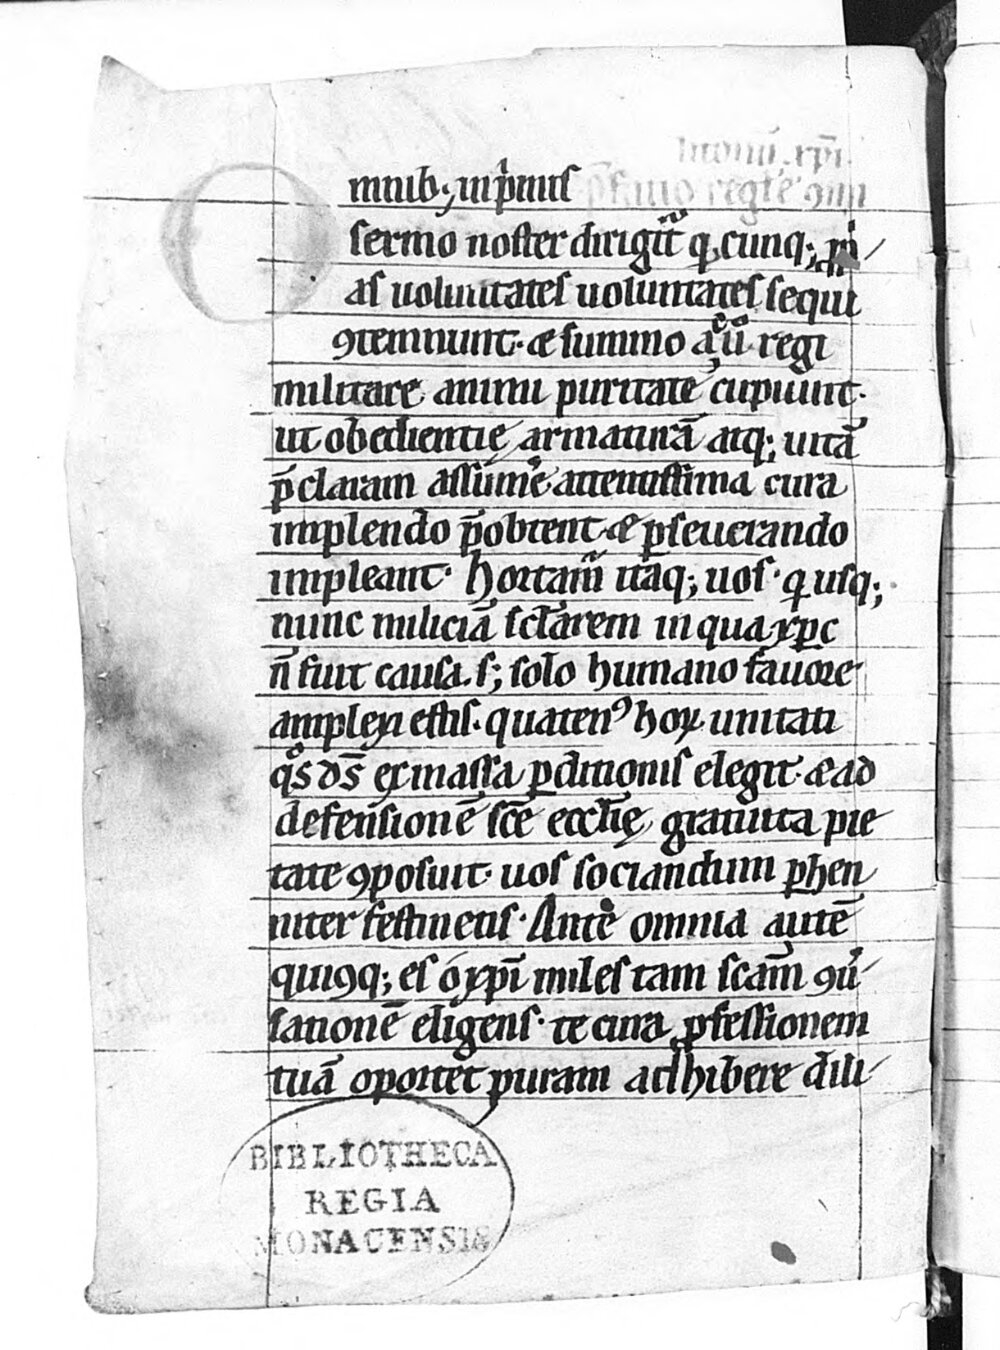 Omnib; in p̄mis
sermo noster dirigit̃ q̨cunq; p̱pri
as uoluntates uoluntates sequi
ꝯtemnunt· & summo ac uo regi
militare animi puritate cupiunt·
ut obedientię armaturā atq; uitā
p̄claram assumˀe attentissima cura
implendo p̄obtent· & ꝑseuerando
impleant· hortam̃ itaq; uos· q usq;
nunc miliciā sc̄larem in qua xp̄c
n̄ fuit causa· s; solo humano fauore
amplexi estis· quatenꝰ hoꝝ unitati
qͦs ds̄ ex massa ꝑditionis elegit· & ad
defensionē sc̄e eccl̄ię gratuita pie
tate ꝯposuit· uos sociandum ꝑhen
niter festinetis· Ante omnia autē
quiꝯq; es ó xp̄i miles tam sc̄am ꝯuˀ
sationē eligens· te cura ꝓfessionem
tuā oportet puram adhibere dili
BIBLIOTHECA
REGIA
MONACENSIS